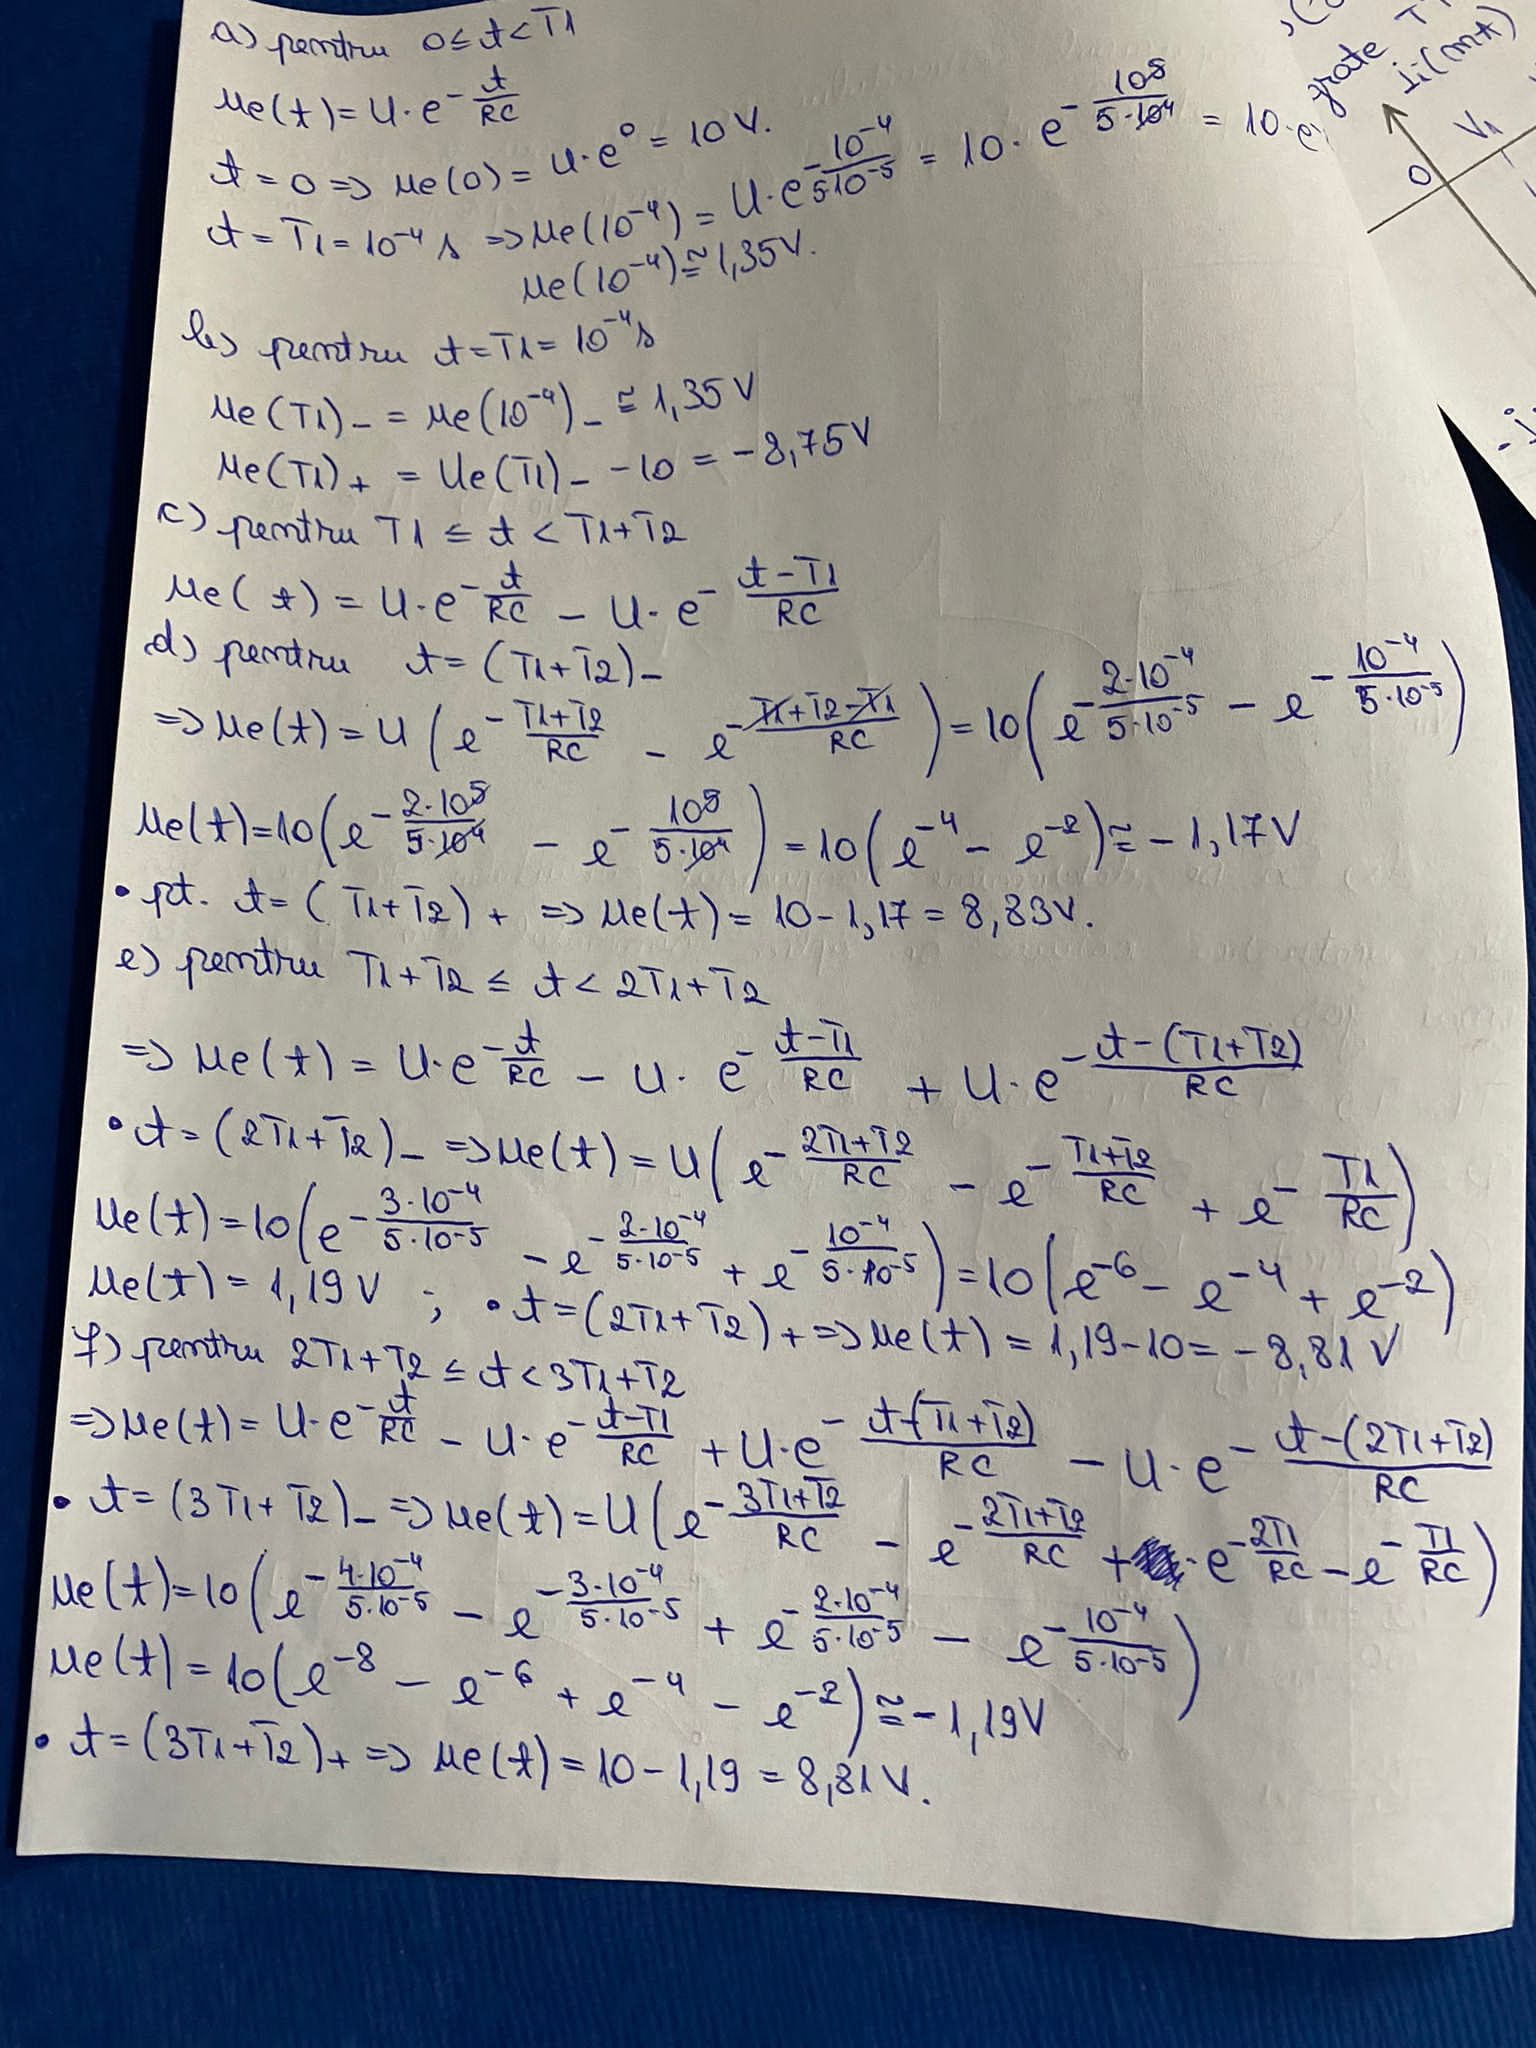 a) pentru 0 ≤ t < T1
ue(t) = U·e^(-t/RC)
t = 0 => ue(0) = U·e^0 = 10 V.
t = T1 = 10^-4 s => ue(10^-4) = U·e^(-10^-4/5·10^-5) = 10·e^(-10^5/5·10^4) = 10·e
ue(10^-4) ≅ 1,35 V.
b) pentru t = T1 = 10^-4 s
ue(T1)- = ue(10^-4)- ≅ 1,35 V
ue(T1)+ = Ue(T1)- - 10 = -8,75 V
c) pentru T1 ≤ t < T1+T2
ue(t) = U·e^(-t/RC) - U·e^(-(t-T1)/RC)
d) pentru t = (T1+T2)-
=> ue(t) = U(e^(-(T1+T2)/RC) - e^(-(T1+T2-T1)/RC)) = 10(e^(-2·10^-4/5·10^-5) - e^(-10^-4/5·10^-5))
ue(t) = 10(e^(-2·10^5/5·10^4) - e^(-10^5/5·10^4)) = 10(e^-4 - e^-2) ≅ -1,17 V
• pt. t = (T1+T2)+ => ue(t) = 10 - 1,17 = 8,83 V.
e) pentru T1+T2 ≤ t < 2T1+T2
=> ue(t) = U·e^(-t/RC) - U·e^(-(t-T1)/RC) + U·e^(-(t-(T1+T2))/RC)
• t = (2T1+T2)- => ue(t) = U(e^(-(2T1+T2)/RC) - e^(-(T1+T2)/RC) + e^(-T1/RC))
ue(t) = 10(e^(-3·10^-4/5·10^-5) - e^(-2·10^-4/5·10^-5) + e^(-10^-4/5·10^-5)) = 10(e^-6 - e^-4 + e^-2)
ue(t) = 1,19 V ; • t = (2T1+T2)+ => ue(t) = 1,19 - 10 = -8,81 V
f) pentru 2T1+T2 ≤ t < 3T1+T2
=> ue(t) = U·e^(-t/RC) - U·e^(-(t-T1)/RC) + U·e^(-(t-(T1+T2))/RC) - U·e^(-(t-(2T1+T2))/RC)
• t = (3T1+T2)- => ue(t) = U(e^(-(3T1+T2)/RC) - e^(-(2T1+T2)/RC) + e^(-2T1/RC) - e^(-T1/RC))
ue(t) = 10(e^(-4·10^-4/5·10^-5) - e^(-3·10^-4/5·10^-5) + e^(-2·10^-4/5·10^-5) - e^(-10^-4/5·10^-5))
ue(t) = 10(e^-8 - e^-6 + e^-4 - e^-2) ≅ -1,19 V
• t = (3T1+T2)+ => ue(t) = 10 - 1,19 = 8,81 V.
grate
Ii(mA)
0
V1